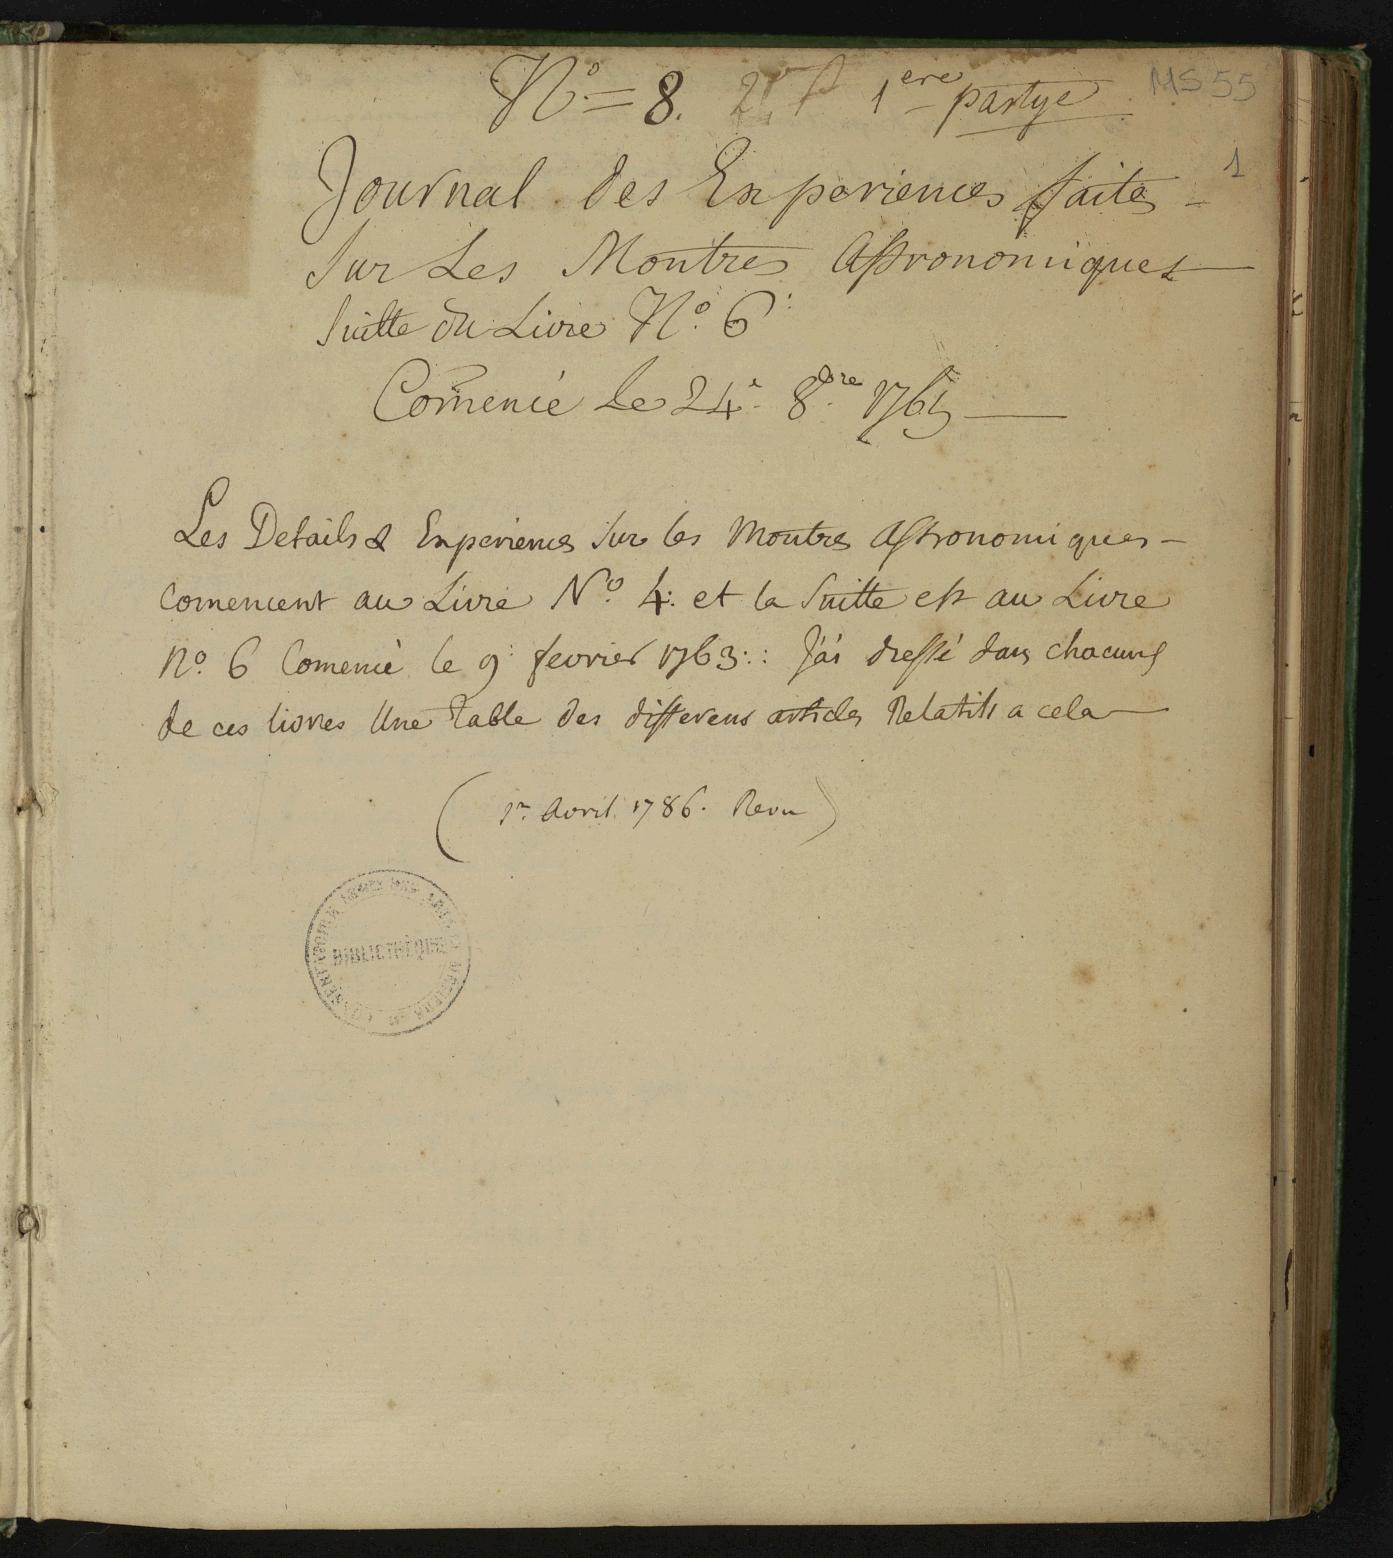 N.° = 8. 1ere partye
MS 55
1
Journal des Experiences faites
Sur Les Montres Astronomiques
Suitte du Livre N.° 6
Comencé le 24.e 8.bre 1765
Les Details & Experiences sur les Montres Astronomiques
Comencent au Livre N.° 4. et la Suitte est au Livre
N.° 6 Comencé le 9 fevrier 1763. J'ai dressé dans chacuns
de ces livres Une table des differens articles Relatifs a cela
(1.er Avril 1786. Revu)
CONSERVATOIRE DES ARTS ET METIERS
BIBLIOTHÈQUE